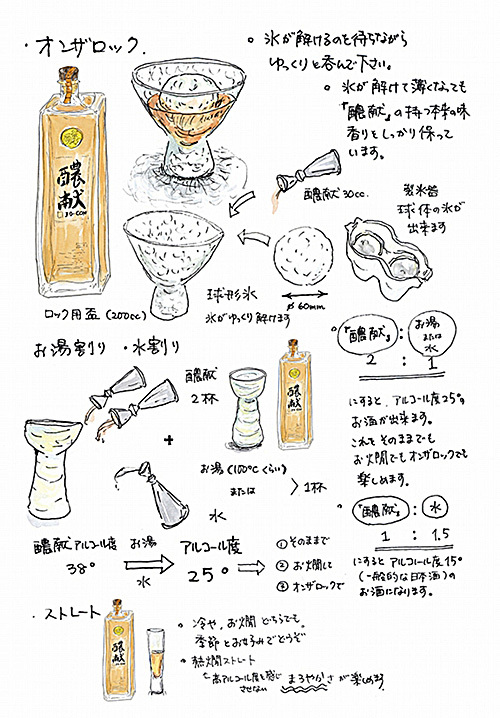 ・オンザロック.
。氷が解けるのを待ちながら
ゆっくりと呑んで下さい。
。氷が解けて薄くなっても
『醲献』の持つ本来の味
香りをしっかり保って
います。
醲献
JO-CON
醲献 30cc.
製氷皿
球体の氷が
出来ます
球形氷
氷がゆっくり解けます
φ60mm
ロック用盃 (200cc)
お湯割り・水割り
醲献
2杯
+
お湯(100℃くらい)
または
水
1杯
醲献
醲献 アルコール度
38°
お湯
水
アルコール度
25°
①そのままで
②お燗して
③オンザロックで
『醲献』 : お湯
または
水
2 : 1
にすると、アルコール度25°の
お酒が出来ます。
これをそのままでも
お燗でもオンザロックでも
楽しめます。
『醲献』 : 水
1 : 1.5
にすると アルコール度15°
(一般的な日本酒)の
お酒になります。
・ストレート
醲献
。冷や、お燗 どちらでも。
季節とお好みでどうぞ
。熱燗ストレート
高アルコール度を感じ
させない まろやかさが楽しめます。